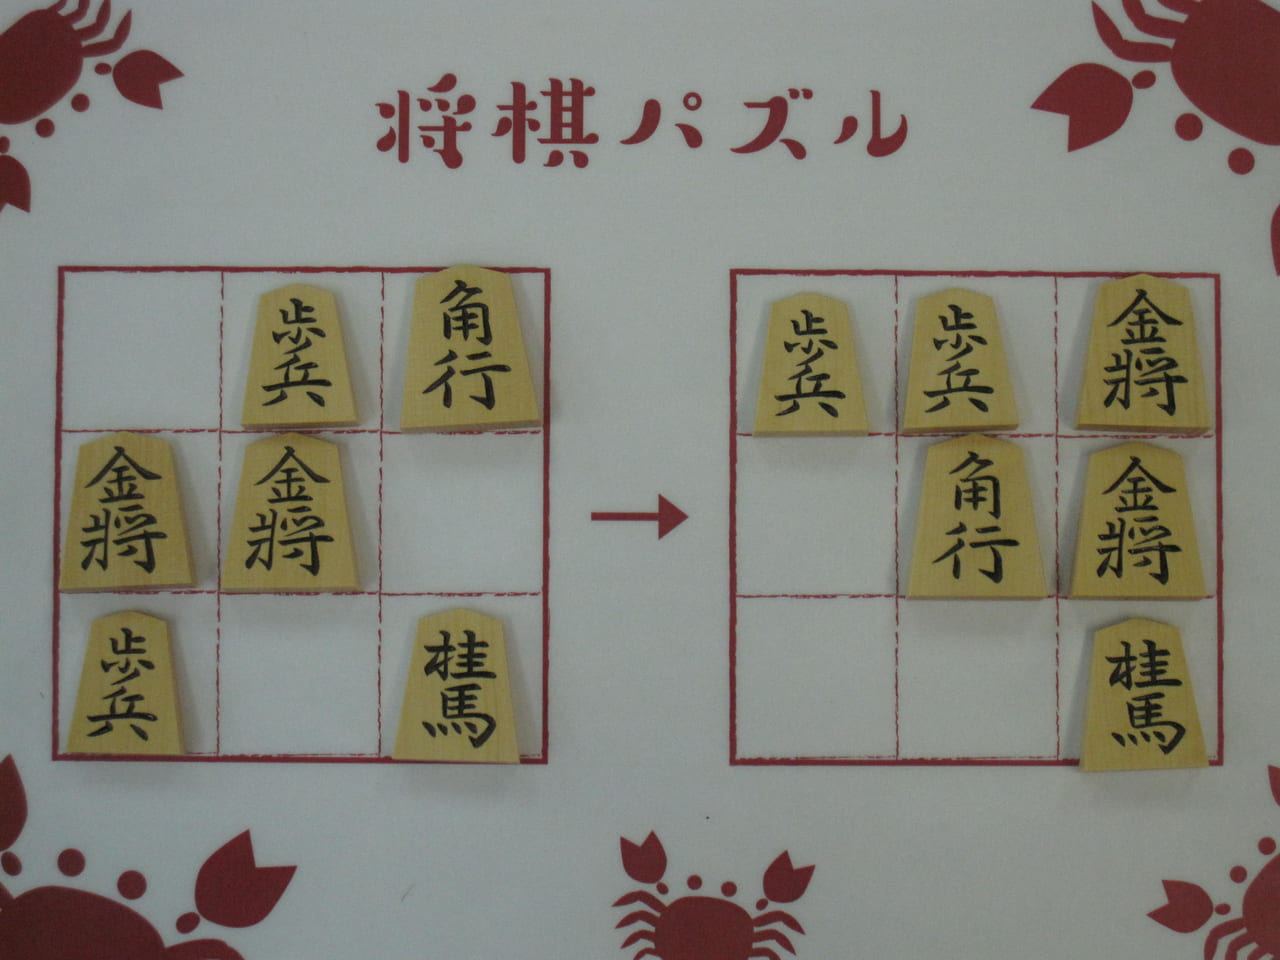 将棋パズル
歩兵
角行
金将
金将
歩兵
桂馬
歩兵
歩兵
金将
角行
金将
桂馬